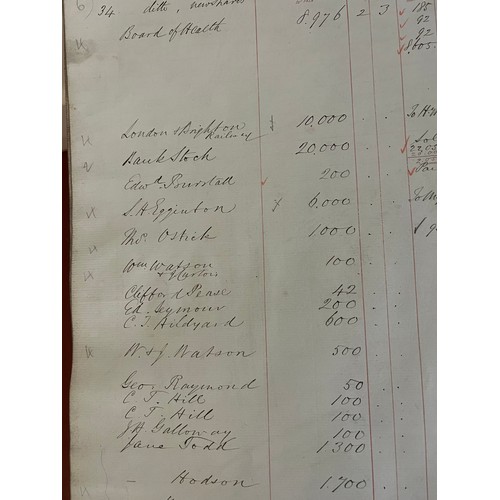 6) 34 ditto, new shares 8,976 2 3 188
Board of Health 92
92
8,605
London & Brighton 10,000 . .
Railway
Bank Stock 20,000 . .
Edwd. Bourstall 200 . .
S. H. Egginton X 6,000 . .
Thos. Ostick 1000 . .
Wm Watson 100 . .
Clifford Pease 42 . .
Ed. Seymour 200 . .
C. T. Hildyard 600 . .
W. & J. Watson 500 . .
Geo. Raymond 50 . .
C. T. Hill 100 . .
C. T. Hill 100 . .
J H. Galloway 100 . .
Jane Todd 1300 . .
– Hodson 1,700 . .